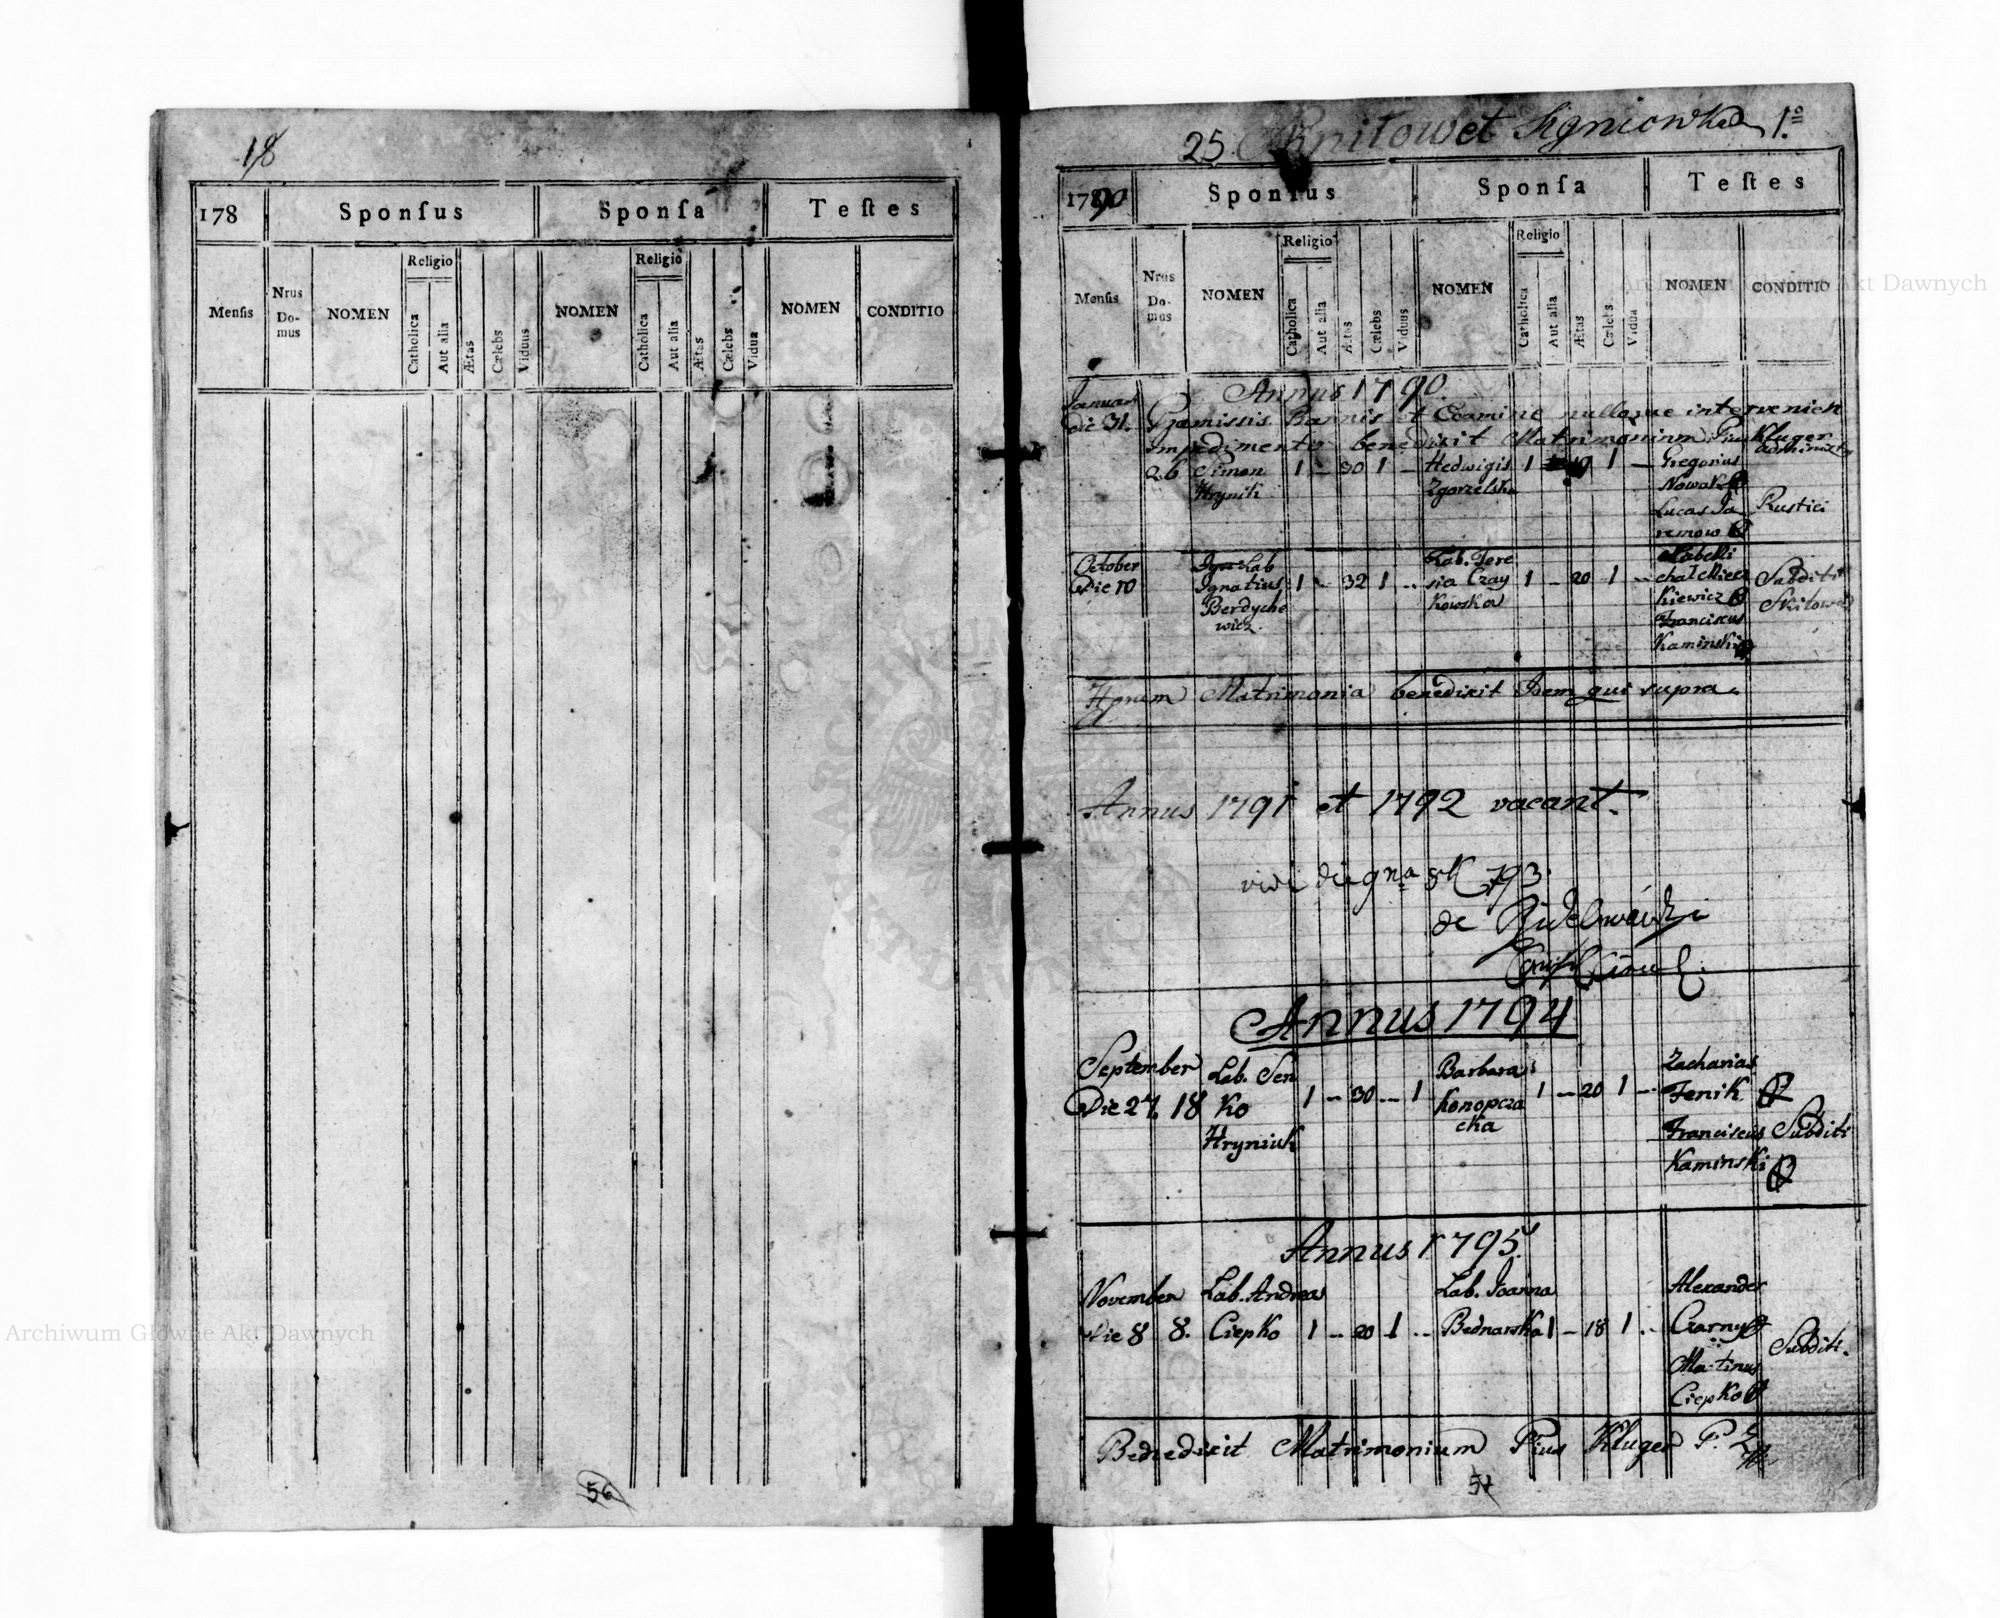 18
178
Sponſus
Sponſa
Teſtes
Menſis
Nrus Do-mus
NOMEN
Religio
Catholica
Aut alia
Ætas
Cælebs
Viduus
NOMEN
Religio
Catholica
Aut alia
Ætas
Cælebs
Vidua
NOMEN
CONDITIO
56
25 et Signiowka 1º
1790
Sponſus
Sponſa
Teſtes
Menſis
Nrus Do-mus
NOMEN
Religio
Catholica
Aut alia
Ætas
Cælebs
Viduus
NOMEN
Religio
Catholica
Aut alia
Ætas
Cælebs
Vidua
NOMEN
CONDITIO
Annus 1790.
Januar
Die 31. Præmissis Bannis et Examine nulloque intervenien
impedimento benedixit Matrimonium Pius Kluger
administr
26 Simon 1 - 30 1 - Hedwigis 1 - 19 1 - Gregorius
Hrynik Zgorzelska Nowak
Lucas Ja Rustici
remow
October Lab Lab. Tere
Die 10 Ignatius 1 - 32 1 - sia Czay 1 - 20 1 - Subditi
Berdycho kowska kiewicz
wicz. Franciscus
Kaminski
Horum Matrimonia benedixit Idem qui supra.
Annus 1791 et 1792 vacant.
793.
de
Annus 1794
September Lab. Sen Barbara Zacharias
Die 27. 18 ko 1 - 30 - 1 Konopcza 1 - 20 1 - Fenik
Hryniuk cka Franciscus Subditi
Kaminski
Annus 1795.
November Lab. Andreas Lab. Joanna Alexander
Die 8 8. Ciepko 1 - 20 1 - Bednarska 1 - 18 1 - Czarny
Martinus Subditi.
Ciepko
Benedixit Matrimonium Pius Kluger P.
57
Archiwum Główne Akt Dawnych
Archiwum Główne Akt Dawnych
ARCHIWUM GŁÓWNE AKT DAWNYCH